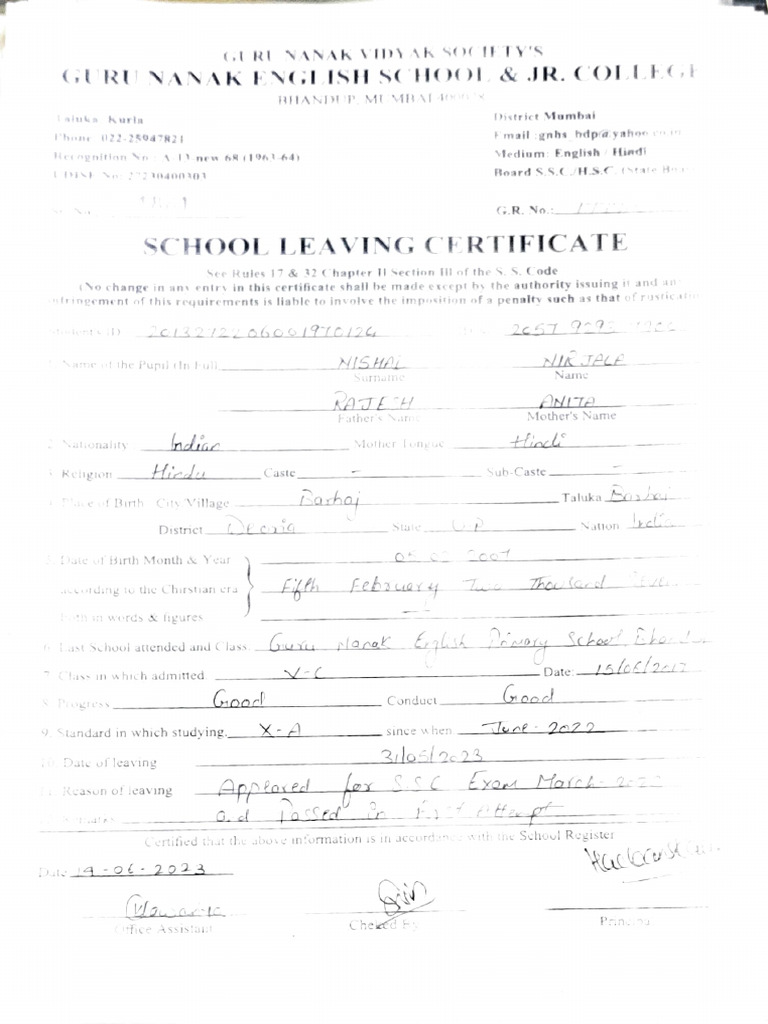 GURU NANAK VIDYAK SOCIETY'S
GURU NANAK ENGLISH SCHOOL & JR. COLLEGE
BHANDUP, MUMBAI
Taluka: Kurla District Mumbai
Phone: 022-25947821 Email :gnhs_bdp@yahoo.co.in
Recognition No : A-13-new 68 (1963-64) Medium: English / Hindi
UDISE No: 27230400303 Board S.S.C./H.S.C. (State Board
G.R. No.:
SCHOOL LEAVING CERTIFICATE
See Rules 17 & 32 Chapter II Section III of the S. S. Code
(No change in any entry in this certificate shall be made except by the authority issuing it and any
infringement of this requirements is liable to involve the imposition of a penalty such as that of rustication
Student's ID
1. Name of the Pupil (In Full) NISHAD NIRJALA
Surname Name
RAJESH ANITA
Father's Name Mother's Name
2. Nationality Indian Mother Tongue Hindi
3. Religion Hindu Caste - Sub-Caste -
4. Place of Birth City/Village Barhaj Taluka Barhaj
District Deoria State U.P Nation India
5. Date of Birth Month & Year 2007
according to the Chirstian era Fifth February Two Thousand Seven
Both in words & figures
6. Last School attended and Class. Guru Nanak English Primary School Bhandup
7. Class in which admitted V-C Date: 15/06/2017
8. Progress Good Conduct Good
9. Standard in which studying. X-A since when June-2022
10. Date of leaving 31/05/2023
11. Reason of leaving Appeared for S.S.C Exam March-
12. Remarks and Passed In First Attempt
Certified that the above information is in accordance with the School Register
Date 19-06-2023
Office Assistant Checked By Principal